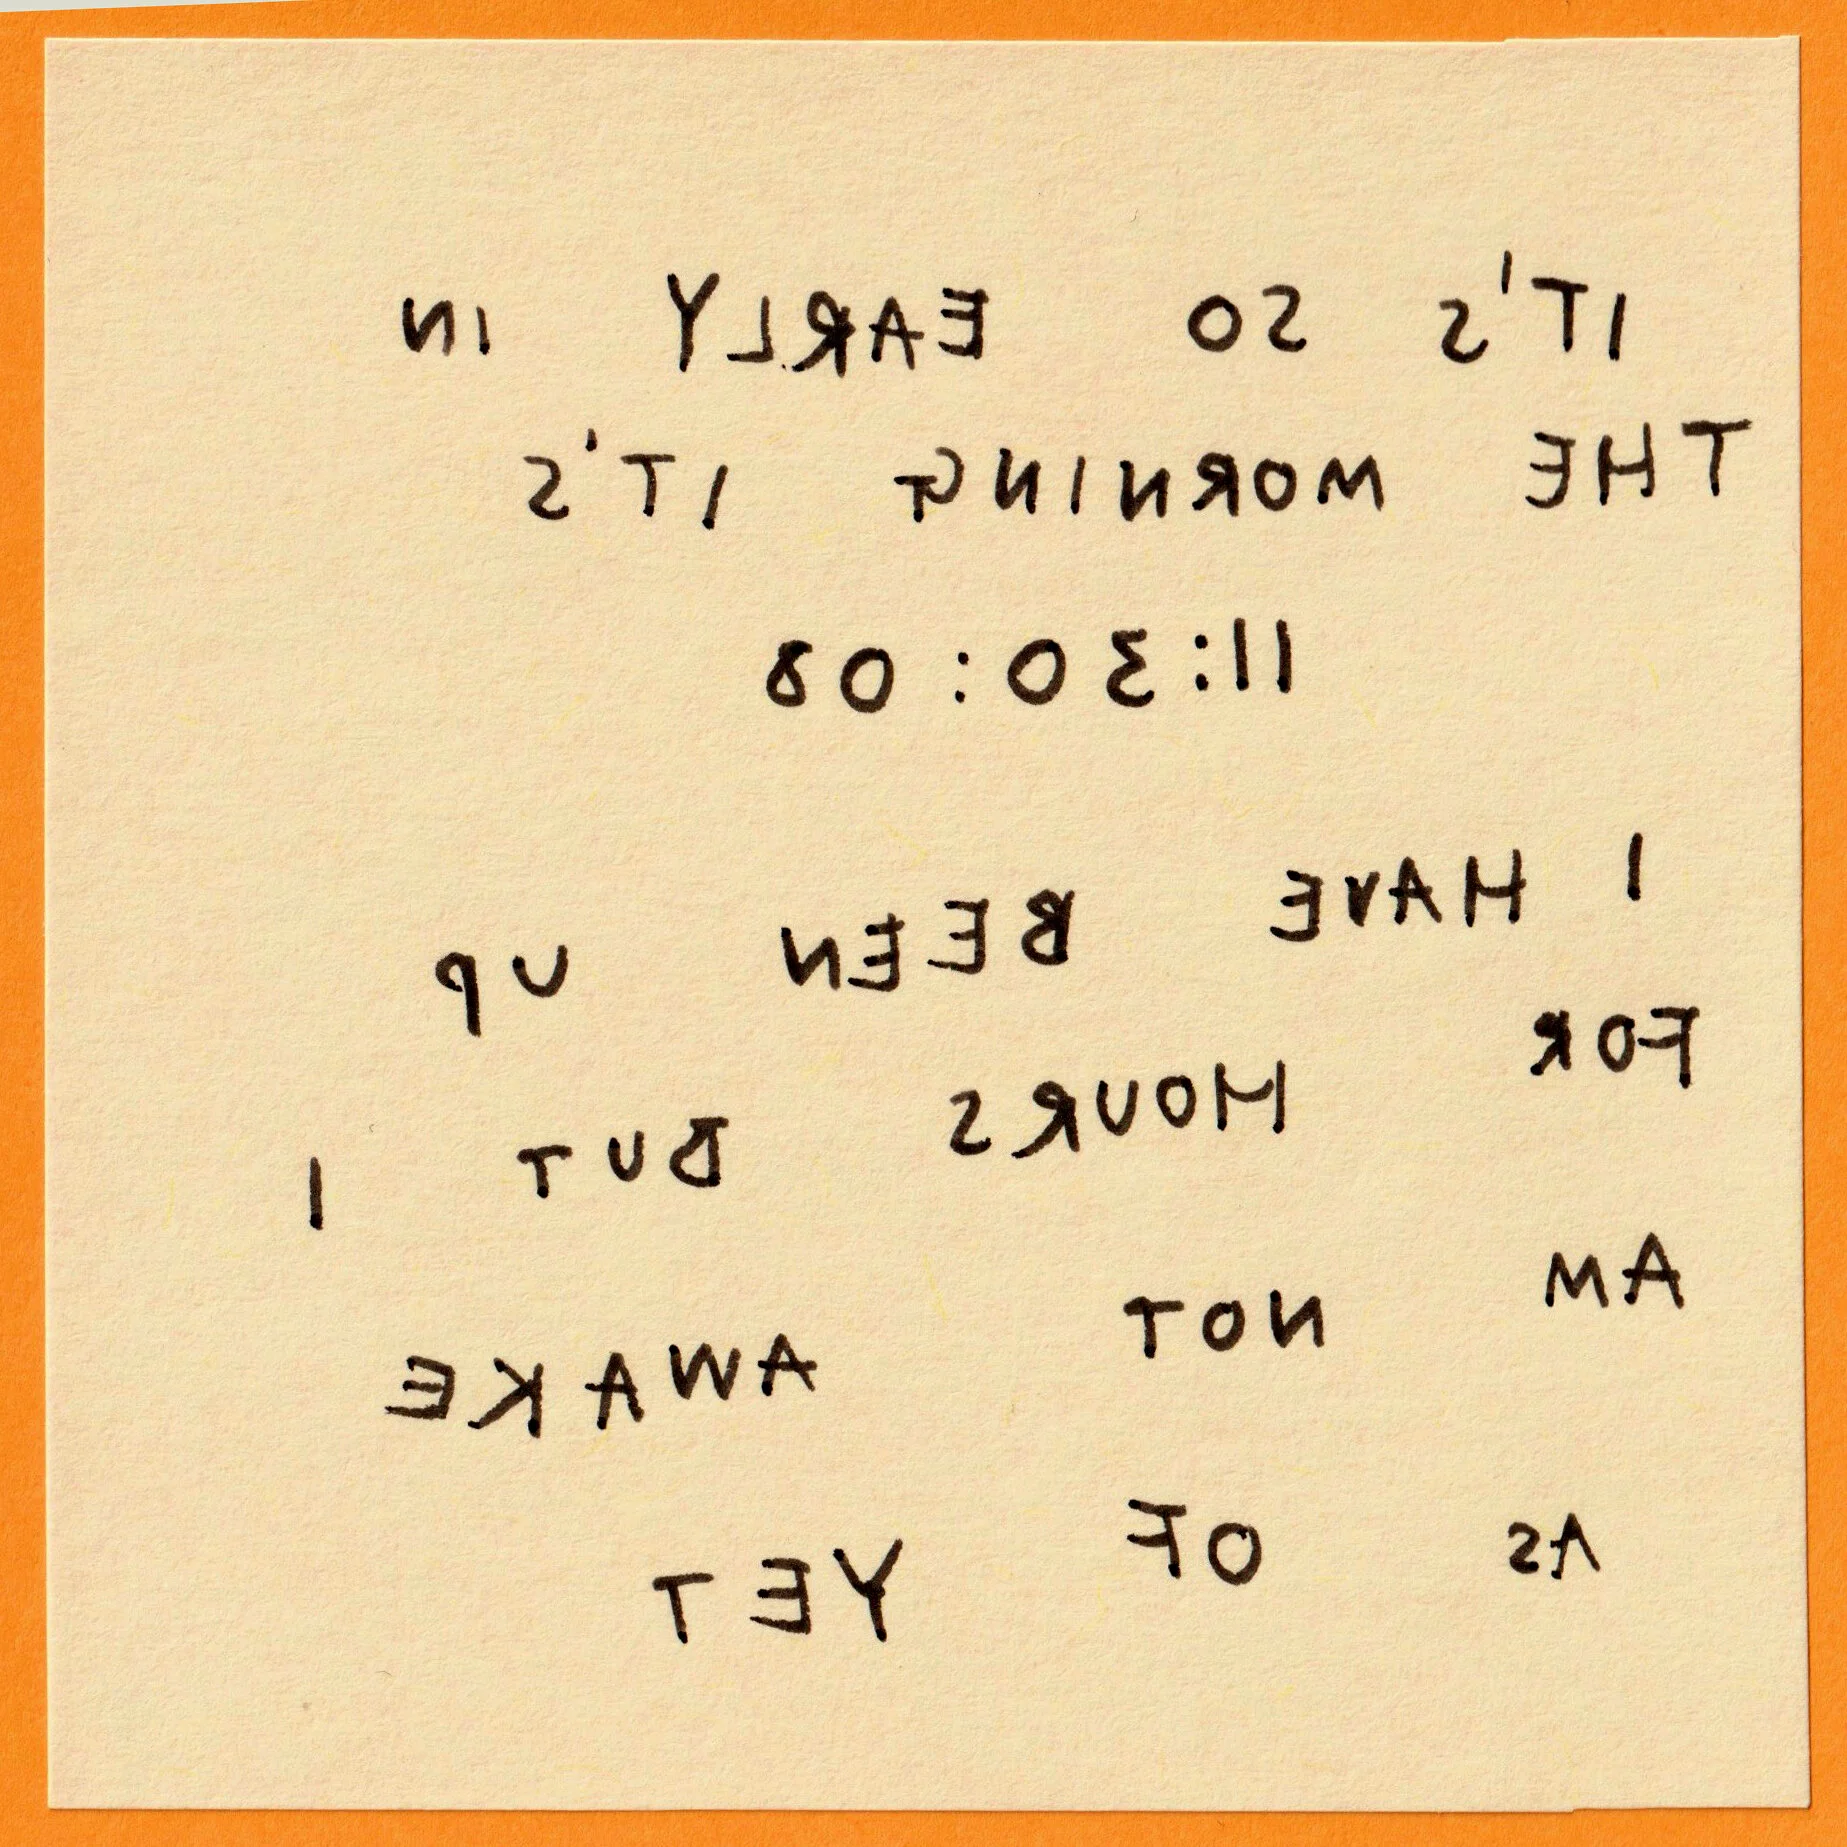 IT'S SO EARLY IN
THE MORNING IT'S
11:30:08
I HAVE BEEN UP
FOR HOURS BUT I
AM NOT AWAKE
AS OF YET